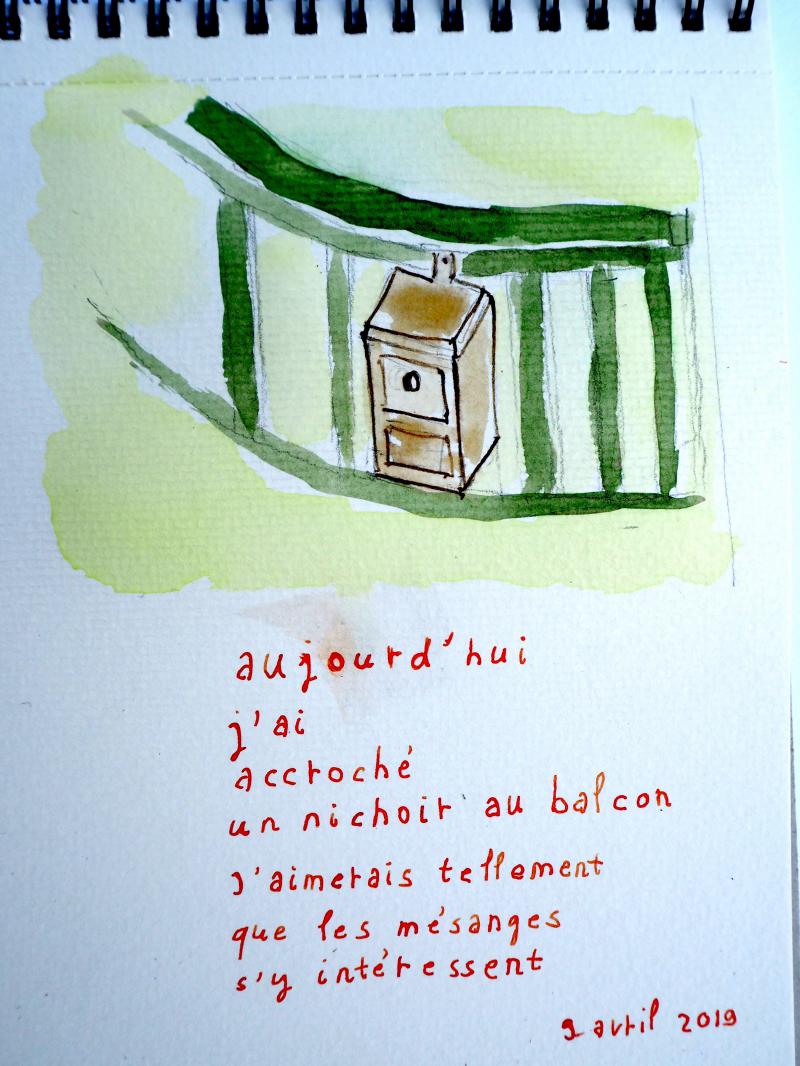 aujourd'hui
j'ai
accroché
un nichoir au balcon
J'aimerais tellement
que les mésanges
s'y intéressent
9 avril 2019